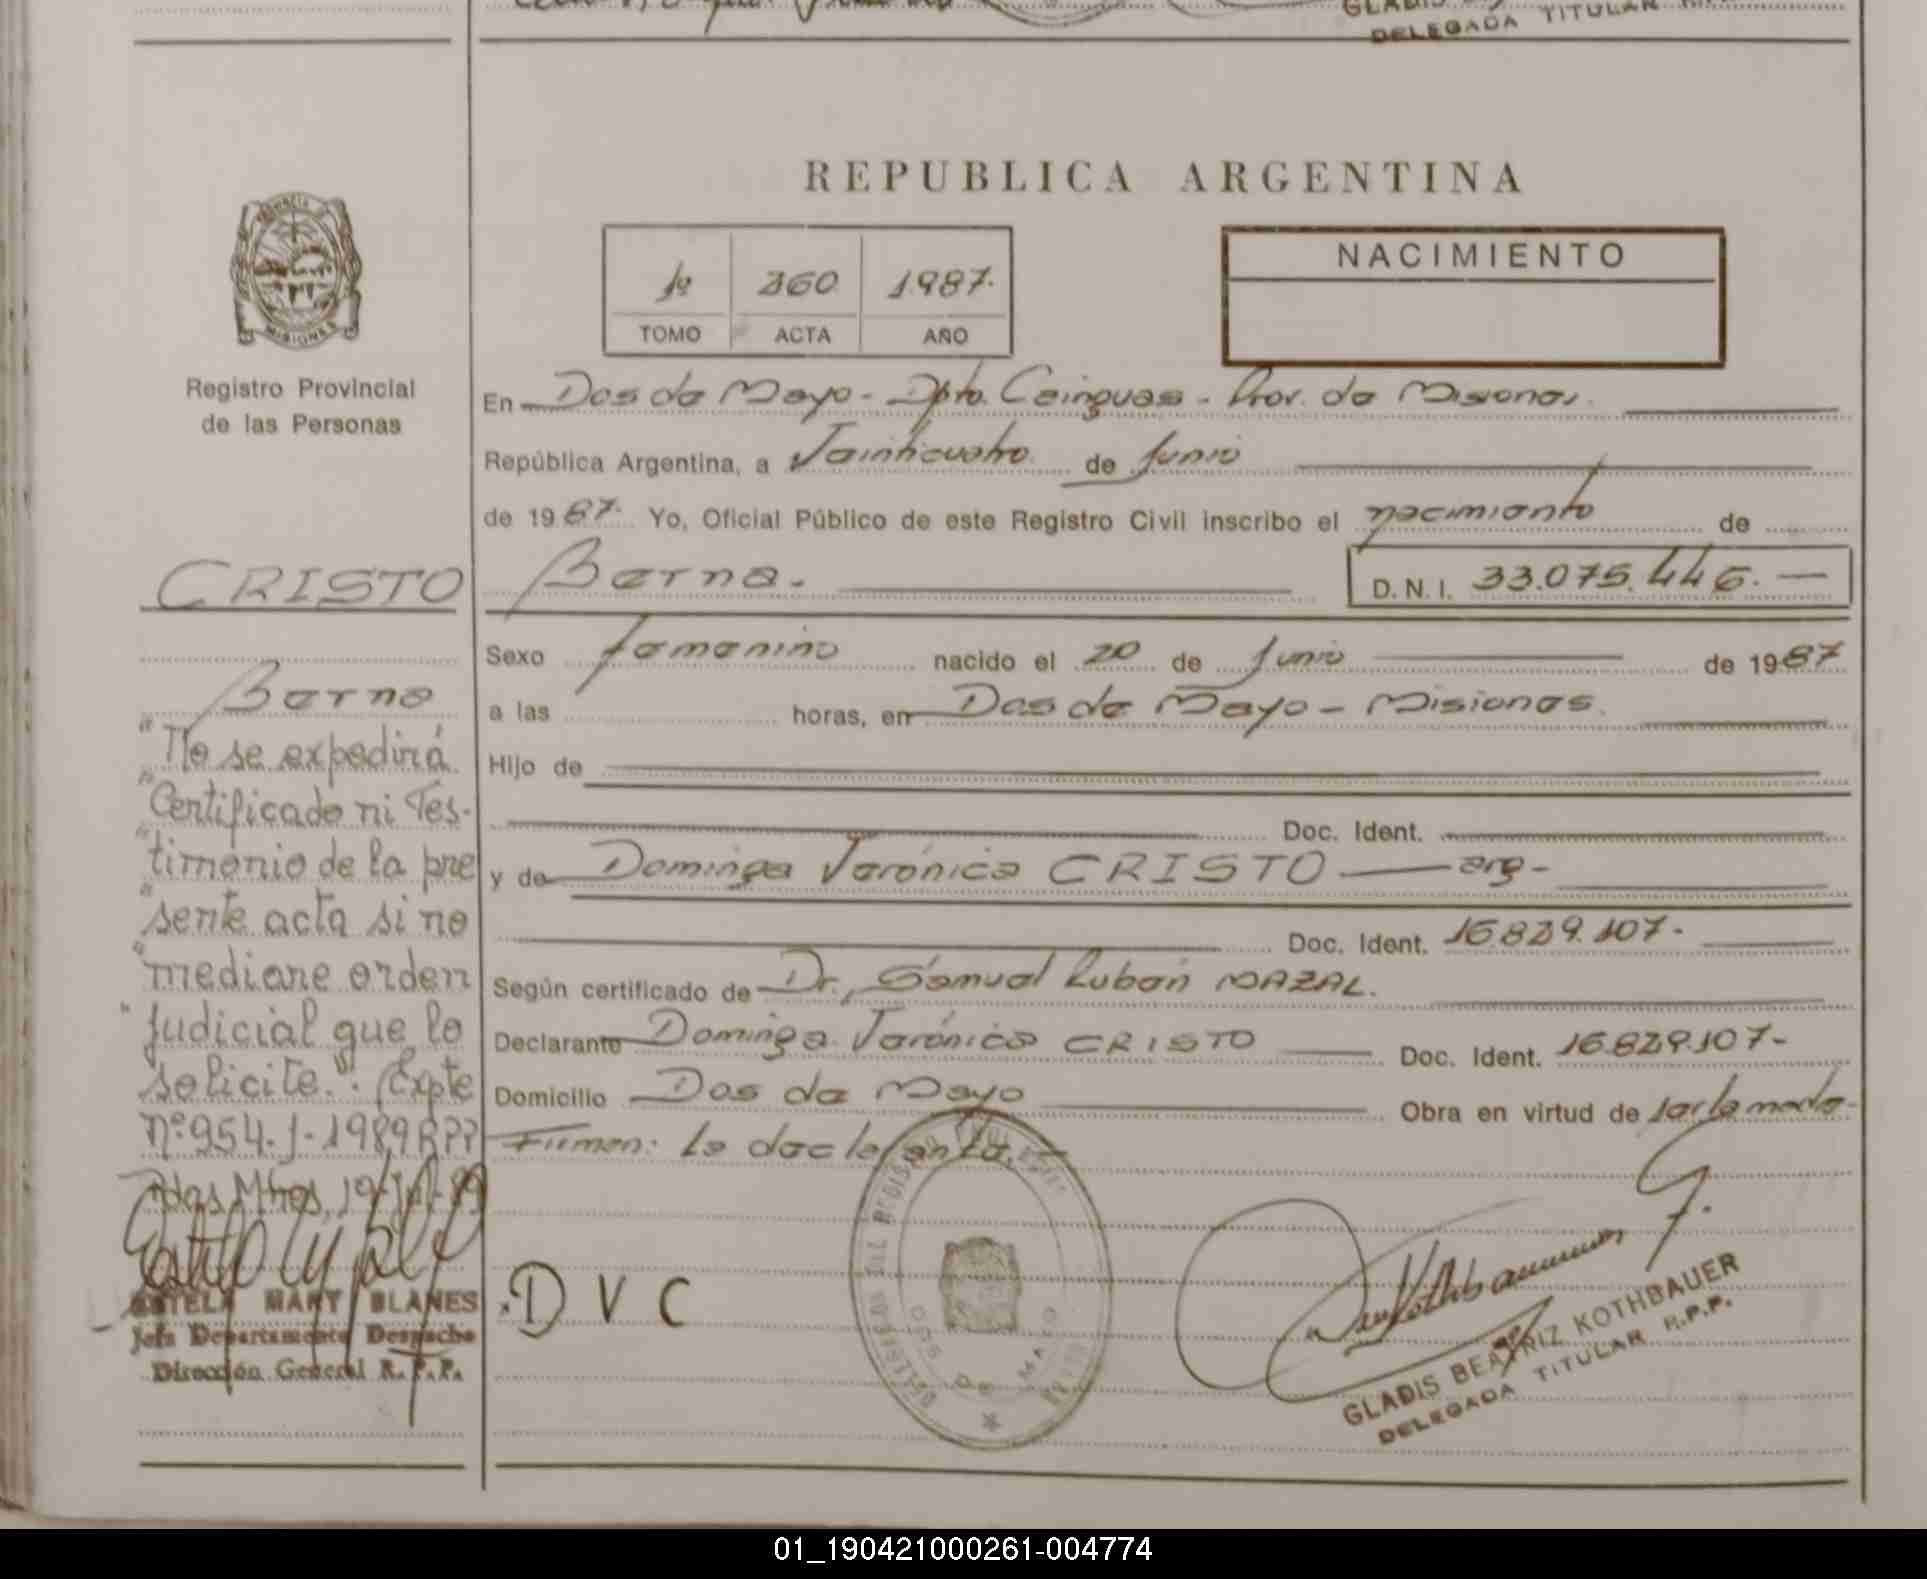 DELEGADA TITULAR
REPUBLICA ARGENTINA
PROVINCIA
MISIONES
Registro Provincial
de las Personas
1º 360 1987.
TOMO ACTA AÑO
NACIMIENTO
En Dos de Mayo - Dpto. Cainguas - Prov. de Misiones.
República Argentina, a Veinticuatro de Junio
de 1987. Yo, Oficial Público de este Registro Civil inscribo el nacimiento de
Berna. D.N.I. 33.075.446.
CRISTO
Berna
"No se expedirá
"Certificado ni Tes-
"timonio de la pre
"sente acta si no
"mediare orden
"judicial que lo
solicite.". (Expte
nº 954-J-1989 RPP
Pdas, Mnes, 19-Jul-89
ESTELA MARY BLANES
Jefa Departamento Despacho
Dirección General R.P.P.
Sexo femenino nacido el 20 de Junio de 1987
a las horas, en Dos de Mayo - Misiones.
Hijo de
Doc. Ident.
y de Dominga Verónica CRISTO arg-
Doc. Ident. 16.829.107.
Según certificado de Dr. Samuel Rubén MAZAL.
Declarante Dominga Verónica CRISTO Doc. Ident. 16.829.107-
Domicilio Dos de Mayo Obra en virtud de ser la madre-
Firman: La declarante.-
DVC
DOS DE MAYO
Kothbauer
GLADIS BEATRIZ KOTHBAUER
DELEGADA TITULAR R.P.P.
01_190421000261-004774